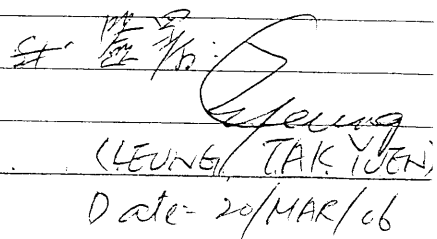 Leung
(LEUNG TAK YUEN)
Date- 20/MAR/06